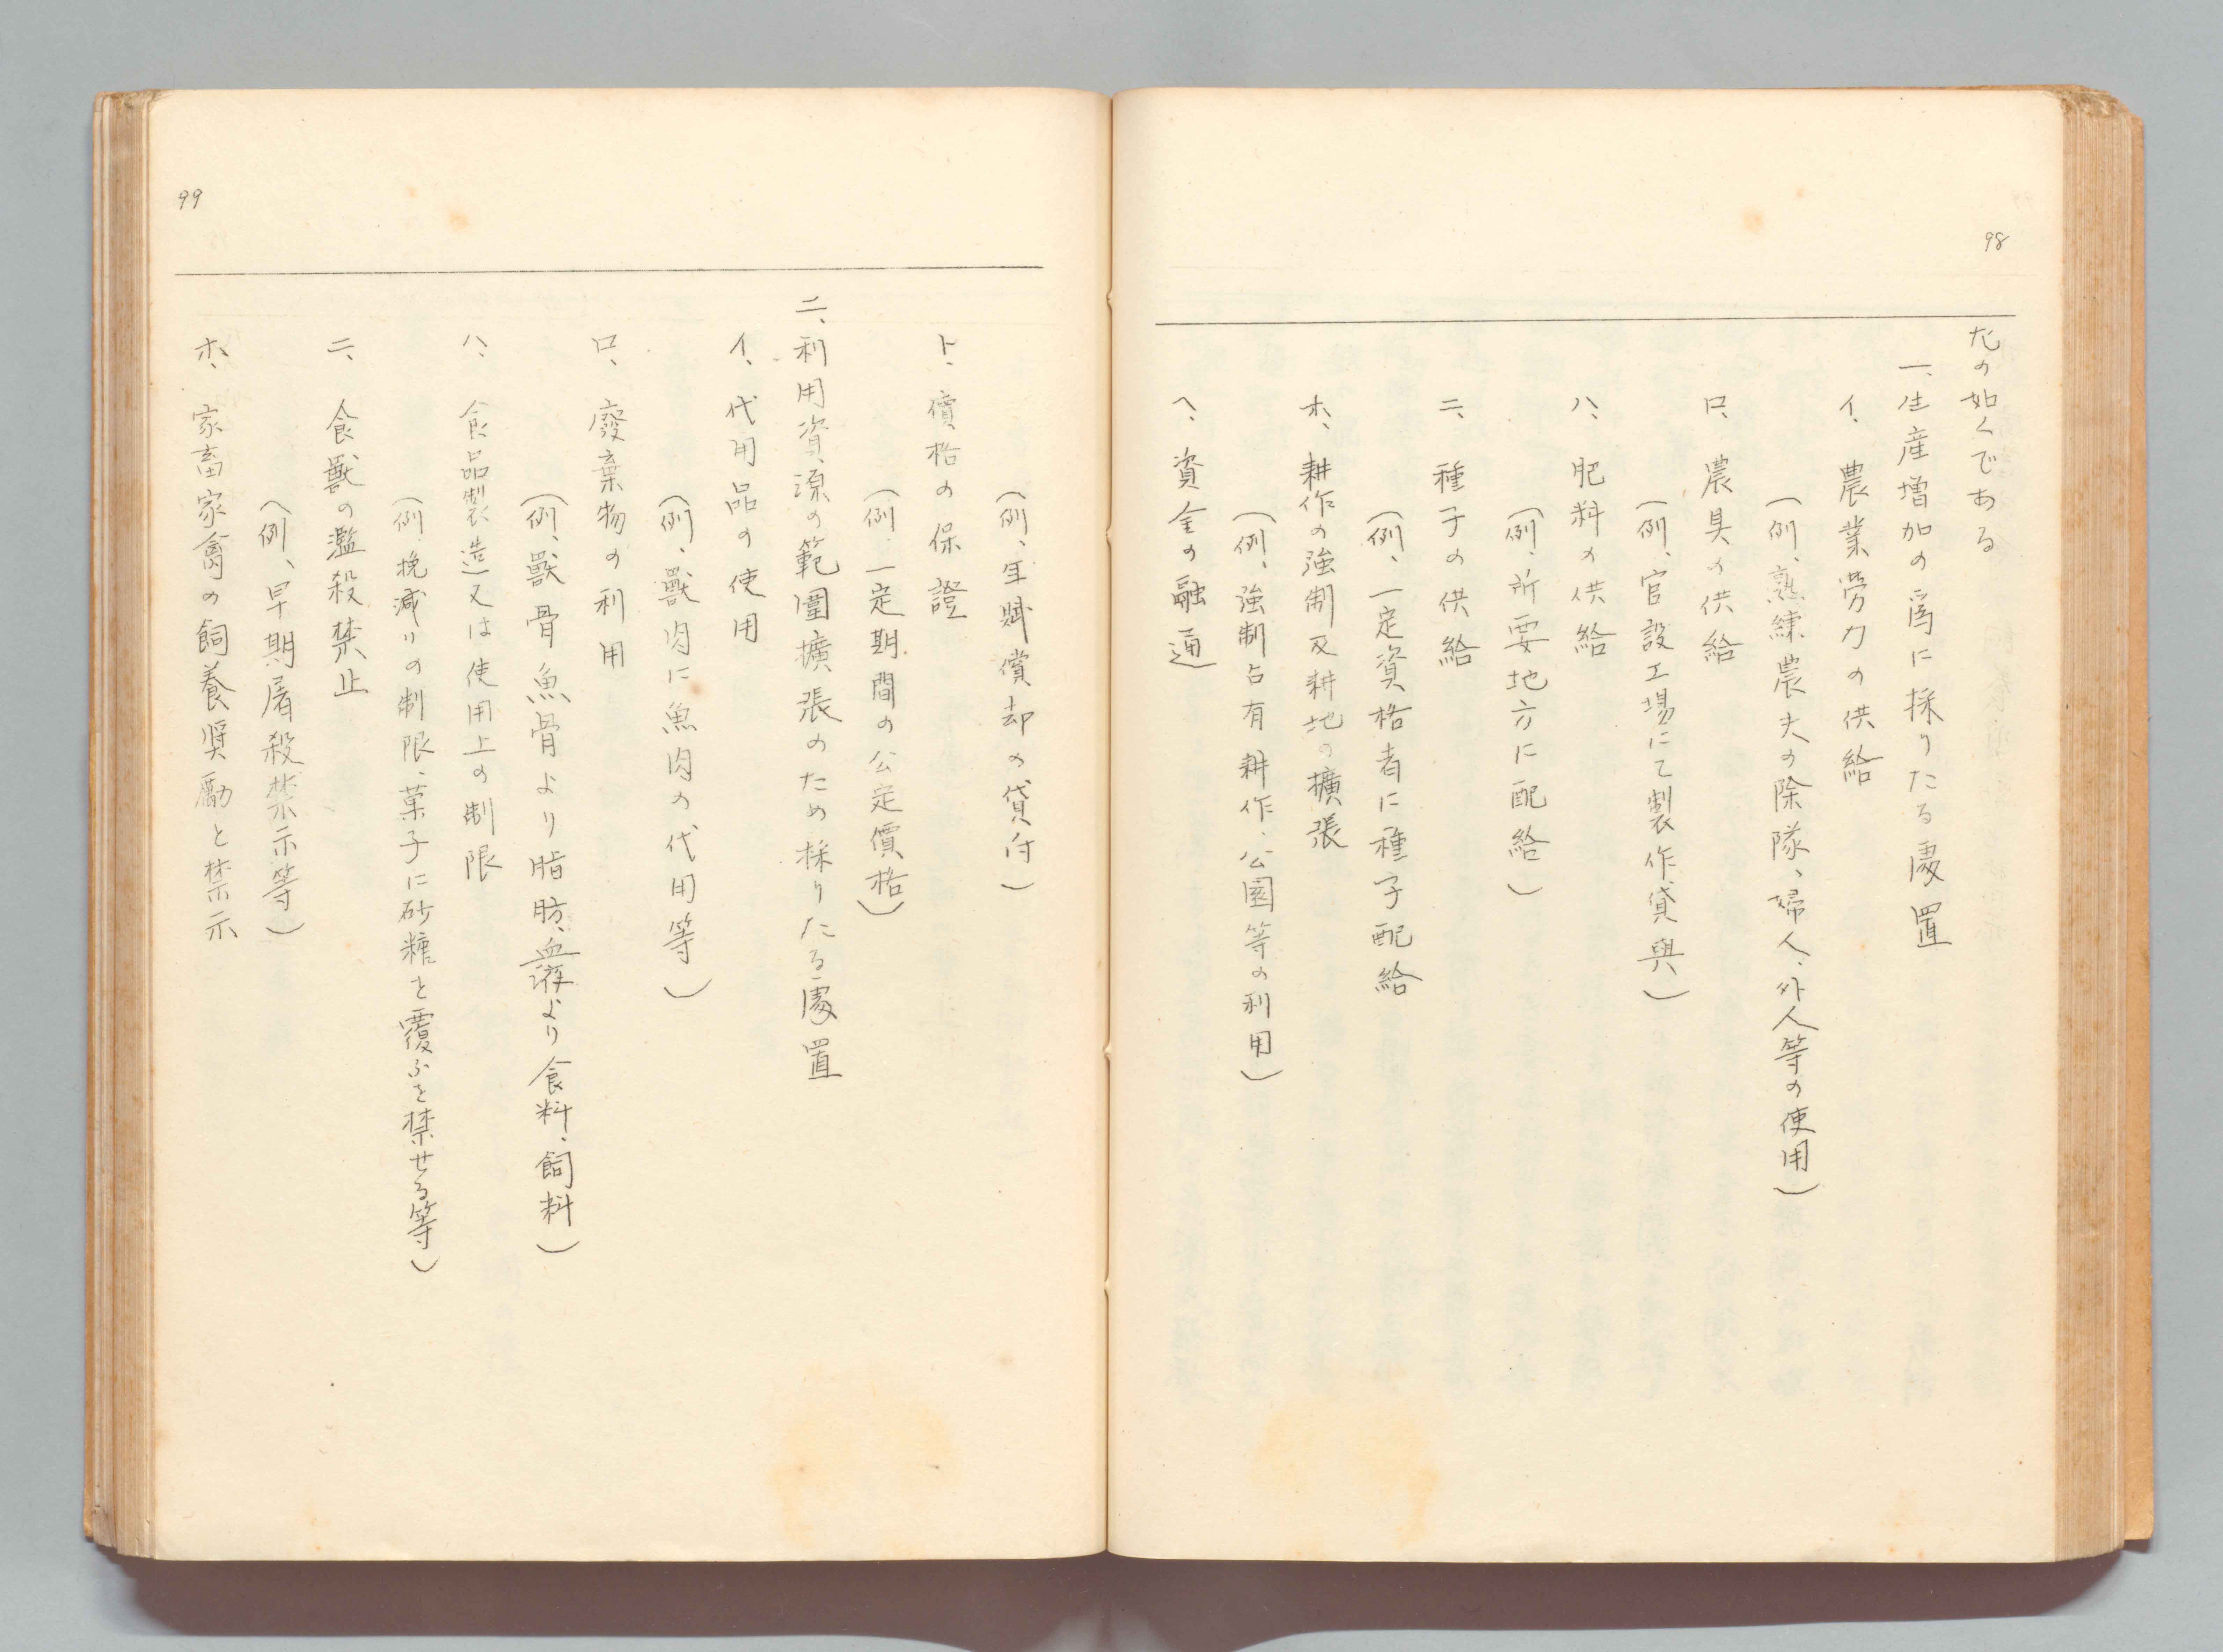 98
左の如くである
一、生産増加の爲に採りたる處置
イ、農業労力の供給
（例、熟練農夫の除隊、婦人、外人等の使用）
ロ、農具の供給
（例、官設工場にて製作、貸與）
ハ、肥料の供給
（例、所要地方に配給）
ニ、種子の供給
（例、一定資格者に種子配給
ホ、耕作の強制及耕地の擴張
（例、強制占有耕作、公園等の利用）
ヘ、資金の融通
99
（例、年賦償却の貸付）
ト、價格の保證
（例、一定期間の公定價格）
二、利用資源の範圍擴張のため採りたる處置
イ、代用品の使用
（例、獸肉に魚肉の代用等）
ロ、廢棄物の利用
（例、獸骨魚骨より脂肪、血液より食料、飼料）
ハ、食品製造又は使用上の制限
（例、挽減りの制限、菓子に砂糖を覆ふを禁せる等）
ニ、食獸の濫殺禁止
（例、早期屠殺禁示等）
ホ、家畜家禽の飼養奨勵と禁示